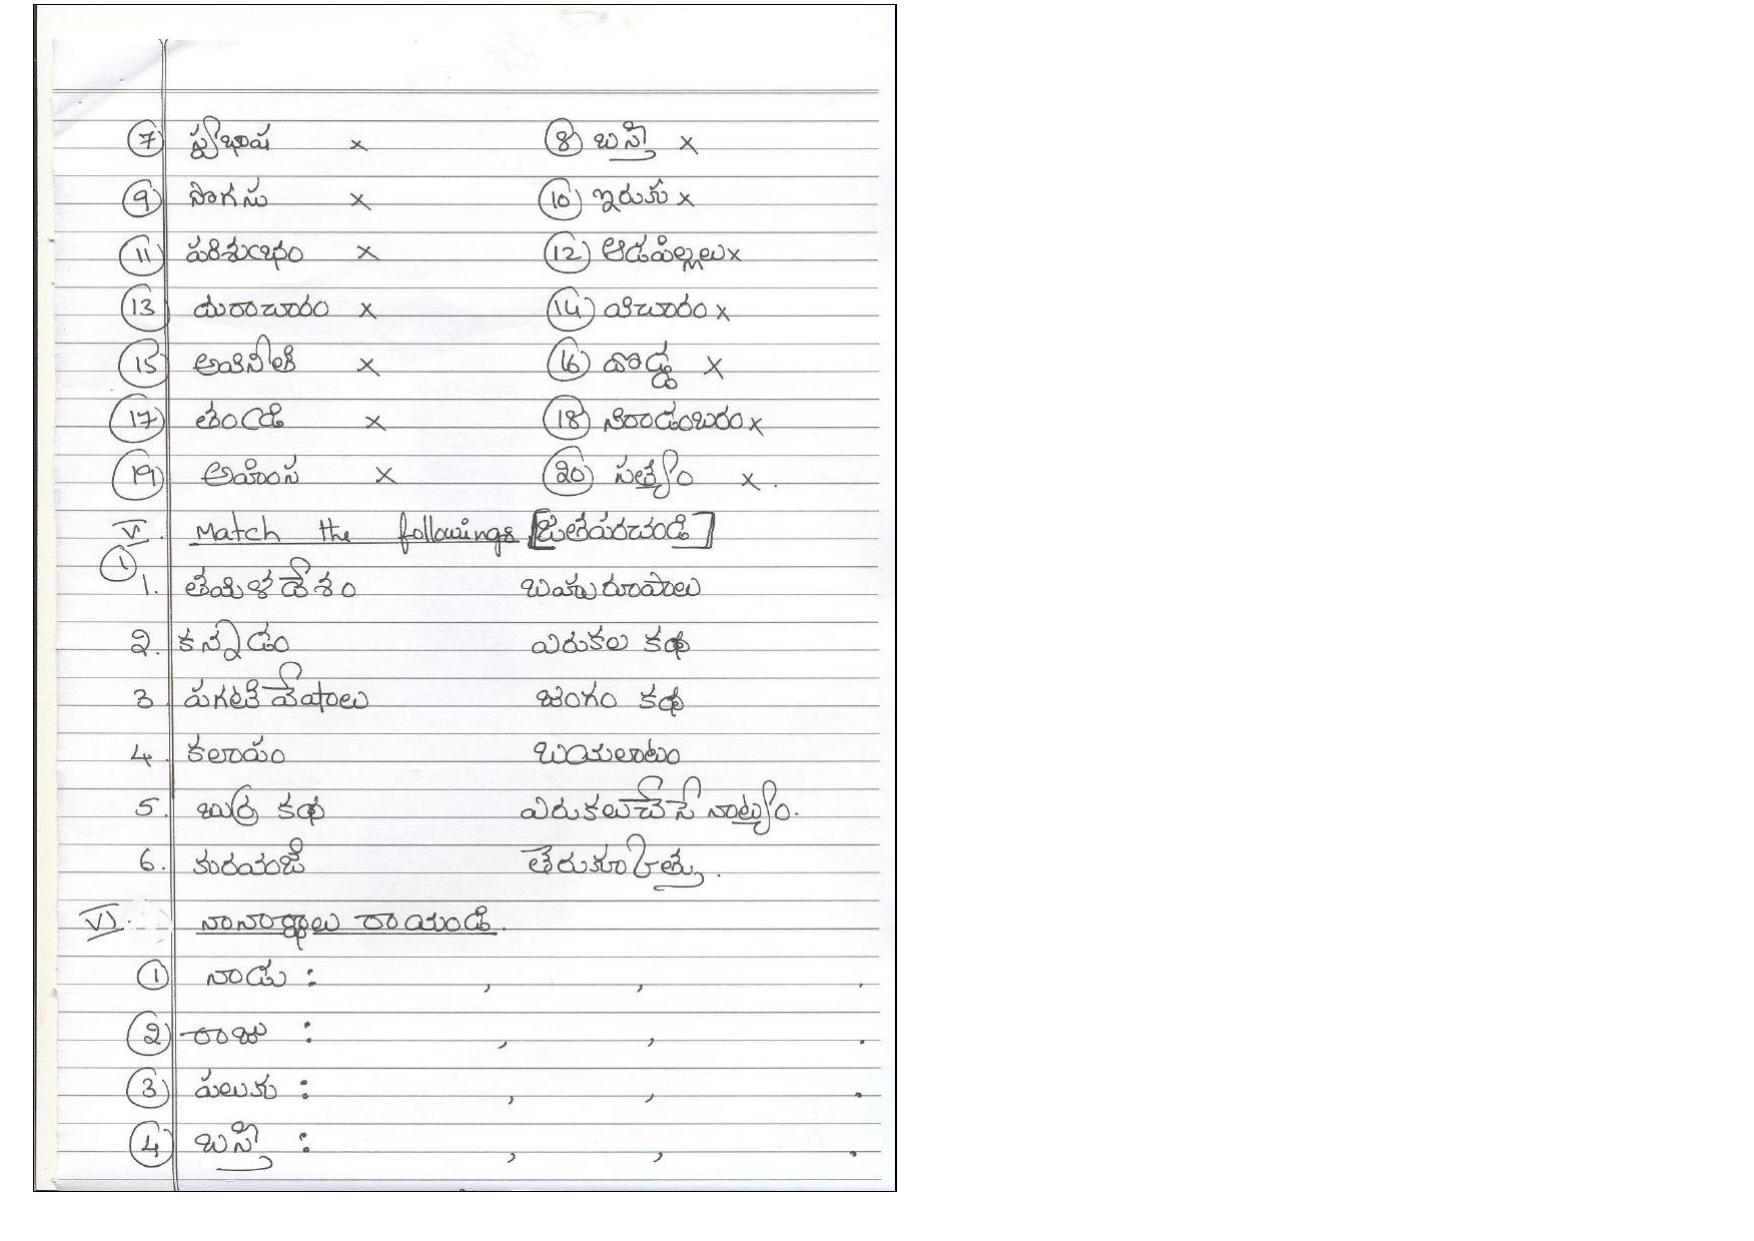 ⑦ స్త్రీభాష × ⑧ బస్తీ ×
⑨ సొగసు × ⑩ ఇరుకు ×
⑪ పరిశుభ్రం × ⑫ ఆడపిల్లలు ×
⑬ దురాచారం × ⑭ విచారం ×
⑮ అవినీతి × ⑯ దొడ్డ ×
⑰ తండ్రి × ⑱ నిరాడంబరం ×
⑲ అహింస × ⑳ సత్యం ×.
V. Match the followings [జతపరచండి]
① 1. తమిళదేశం బహురూపాలు
2. కన్నడం ఎరుకల కథ
3 పగటివేషాలు జంగం కథ
4. కలాపం బయలాటం
5. బుర్ర కథ ఎరుకలుచేసే నాట్యం.
6. కురవంజి తెరుకూత్తు.
VI. నానార్థాలు రాయండి.
① నాడు : , , .
② రాజు : , , .
③ పలుకు : , , .
④ బస్తీ : , , .